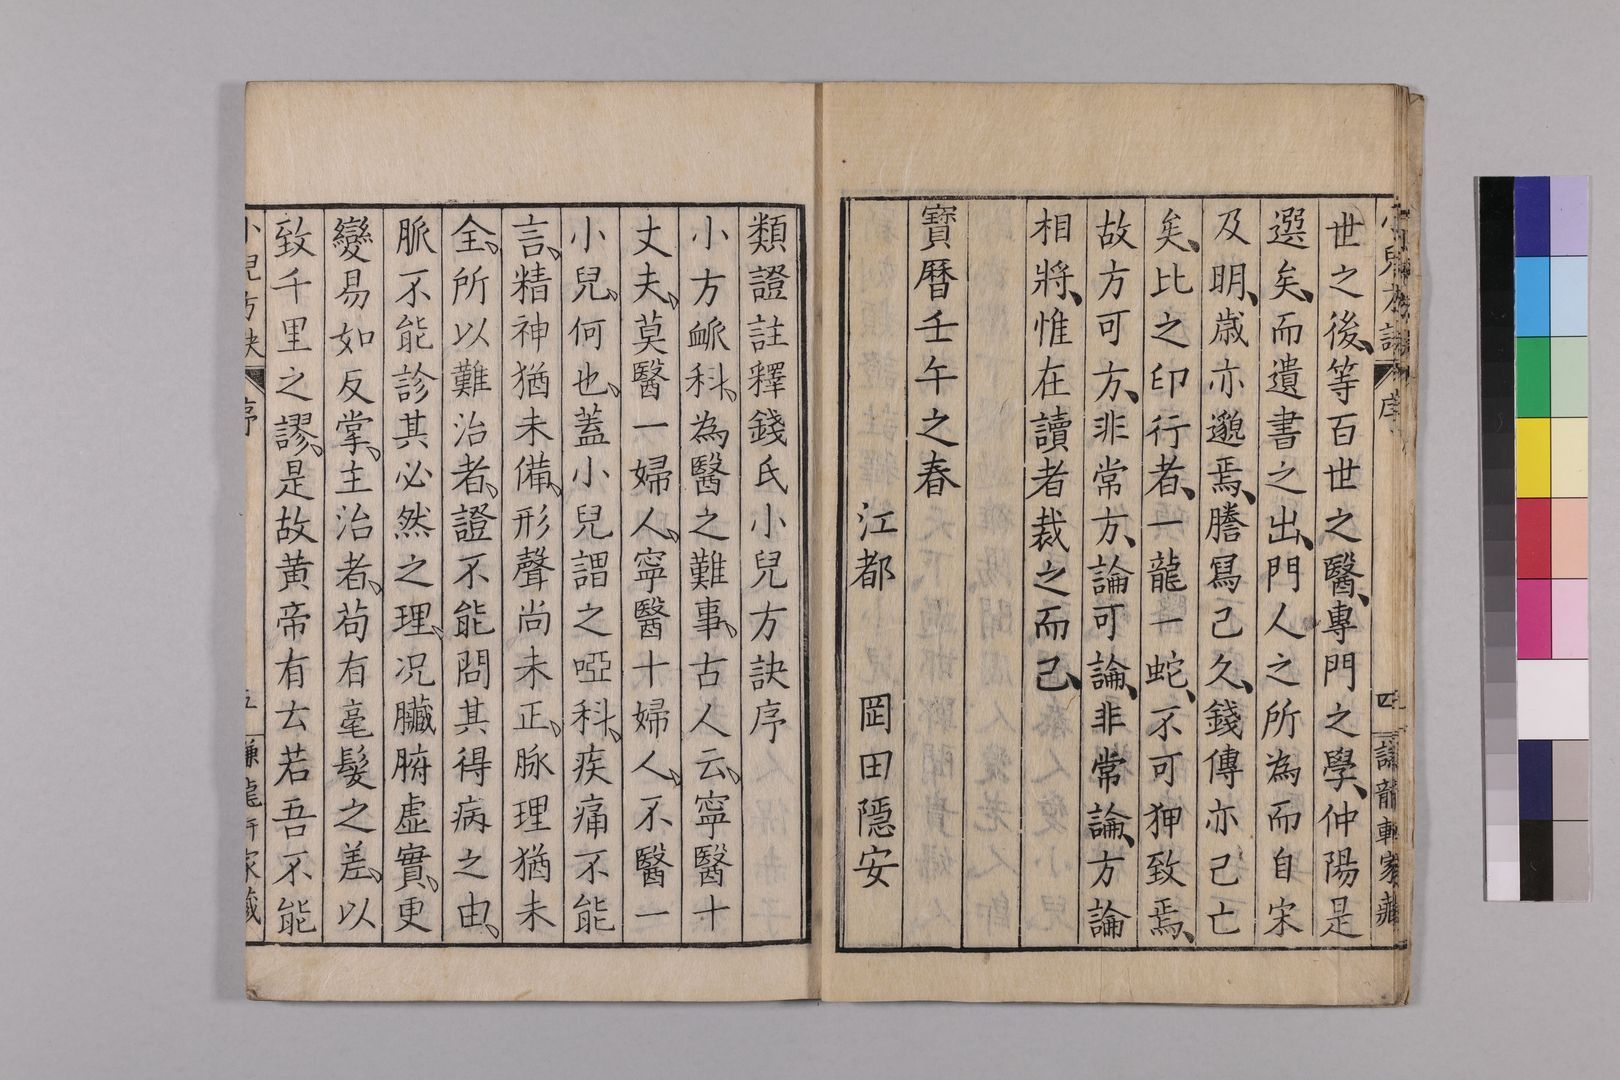 世之後、等百世之醫、專門之學、仲陽是
選矣、而遺書之出、門人之所為而自宋
及明、歳亦邈焉、謄寫已久、錢傳亦已亡
矣、比之印行者、一龍一蛇、不可狎致焉、
故方可方、非常方、論可論、非常論、方論
相將、惟在讀者裁之而已、
寶曆壬午之春
江都 岡田隱安
類證註釋錢氏小兒方訣序
小方脈科、為醫之難事、古人云、寧醫十
丈夫、莫醫一婦人、寧醫十婦人、不醫一
小兒、何也、蓋小兒謂之啞科、疾痛不能
言、精神猶未備、形聲尚未正、脉理猶未
全、所以難治者、證不能問其得病之由、
脈不能診其必然之理、况臟腑虛實、更
變易如反掌、主治者、苟有毫髮之差、以
致千里之謬、是故黃帝有云若吾不能